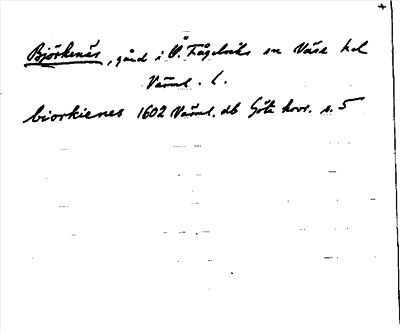 Björkenäs, gård i Ö. Fågelviks sn Väse hd
Värml. l.
biorkienes 1602 Värml. db Göta hovr. s. 5